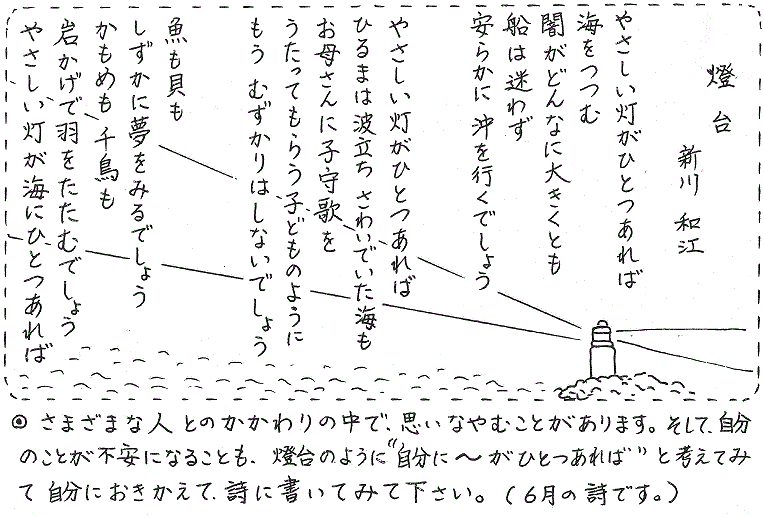 燈台
新川 和江
やさしい灯がひとつあれば
海をつつむ
闇がどんなに大きくとも
船は迷わず
安らかに 沖を行くでしょう
やさしい灯がひとつあれば
ひるまは波立ち さわいでいた海も
お母さんに子守歌を
うたってもらう子どものように
もう むずかりはしないでしょう
魚も貝も
しずかに夢をみるでしょう
かもめも千鳥も
岩かげで羽をたたむでしょう
やさしい灯が海にひとつあれば
◎ さまざまな人とのかかわりの中で、思いなやむことがあります。そして、自分
のことが不安になることも、燈台のように"自分に〜がひとつあれば"と考えてみ
て自分におきかえて、詩に書いてみて下さい。(6月の詩です。)